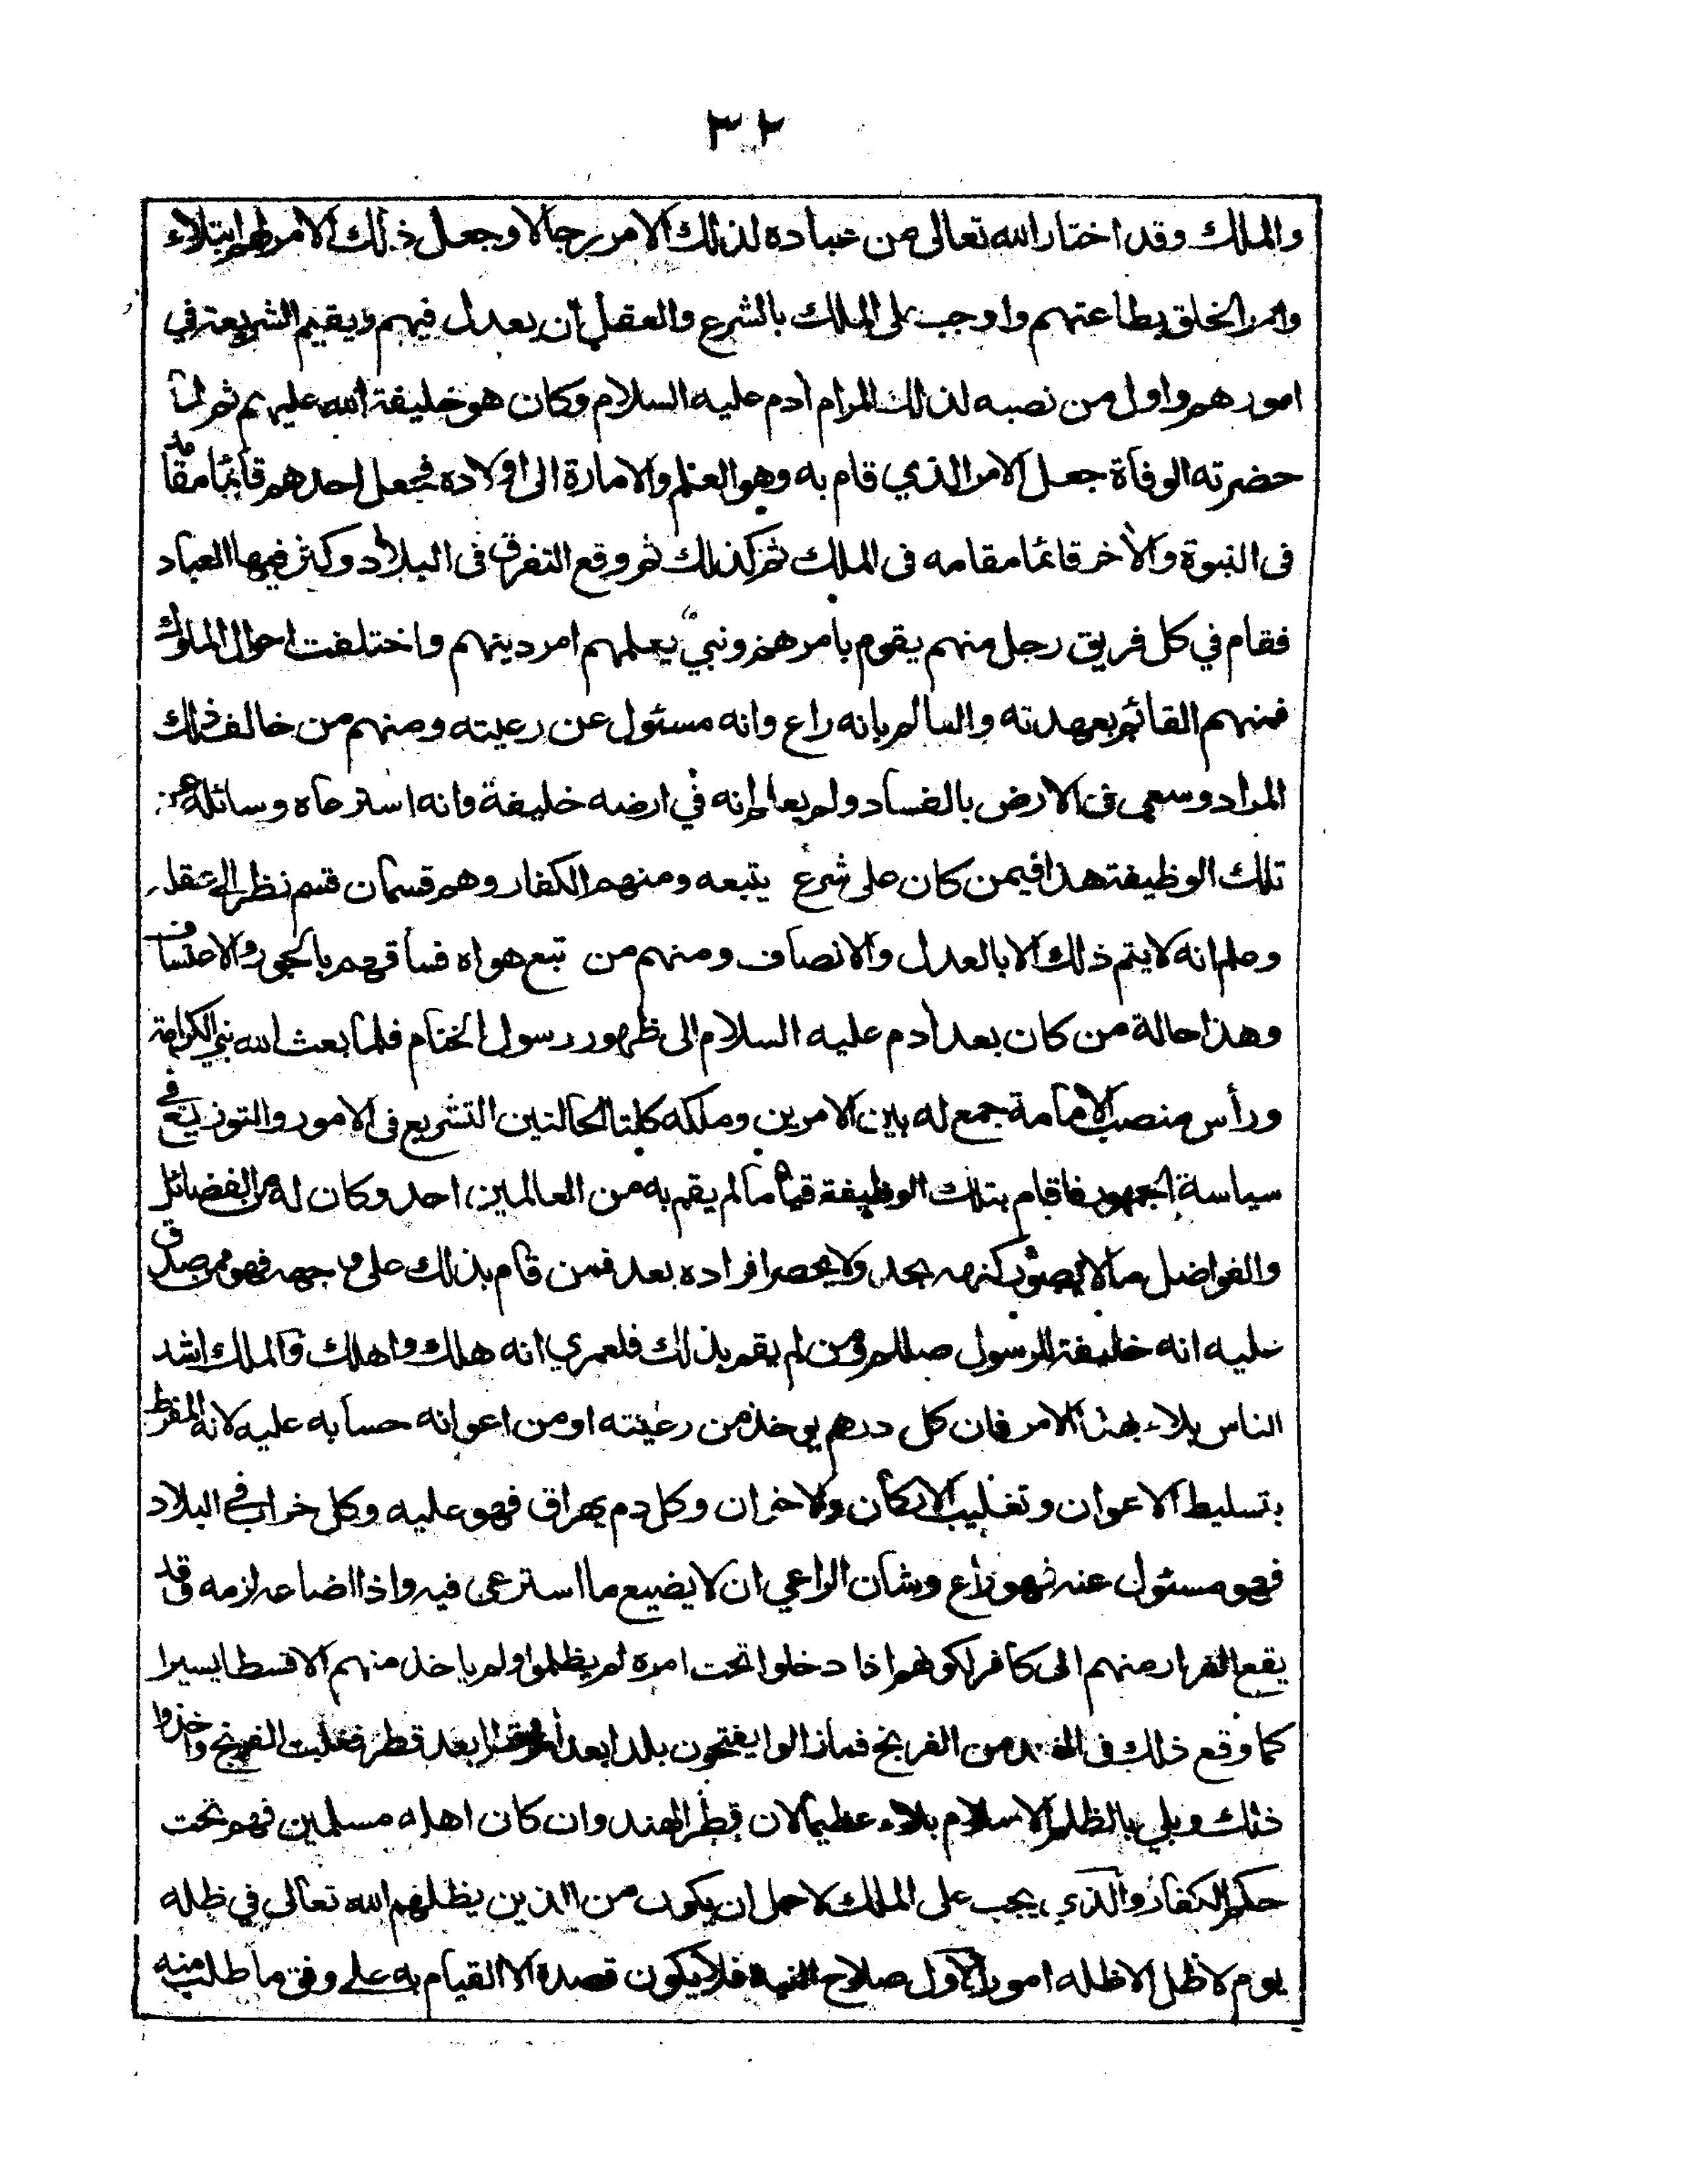 ٣٢
والملك وقد اختار الله تعالى من عباده لذلك الامر رجالا وجعل ذلك الامر لهم ابتلاء
وامر الخلق بطاعتهم واوجب على الملك بالشرع والعقل ان يعدل فيهم ويقيم الشريعة في
امورهم واول من نصبه لذلك المرام آدم عليه السلام وكان هو خليفة الله عليهم ثم لما
حضرته الوفاة جعل الامر الذي قام به وهو العلم والامارة الى اولاده فجعل احدهم قائما مقامه
فى النبوة والأخر قائما مقامه فى الملك ثم كذلك ثم وقع التفرق فى البلاد وكثر فيها العباد
فقام في كل فريق رجل منهم يقوم بأمرهم ونبي يعلمهم امر دينهم واختلفت احوال الملوك
فمنهم القائم بعهدته والعالم بانه راع وانه مسئول عن رعيته ومنهم من خالف ذلك
المراد وسعى فى الارض بالفساد ولم يعلم انه في ارضه خليفة وانه استرعاه وسائله عن
تلك الوظيفة هذا فيمن كان على شرع يتبعه ومنهم الكفار وهم قسمان قسم نظر الى عقله
وعلم انه لا يتم ذلك الا بالعدل والانصاف ومنهم من تبع هواه فساقهم بالجور والاعتساف
وهذا حالة من كان بعد أدم عليه السلام الى ظهور رسول الختام فلما بعث الله نبي الكرامة
ورأس منصب الامامة جمع له بين الامرين وملكه كلتا الحالتين التشريع فى الامور والتوزيع في
سياسة الجمهور فاقام بتلك الوظيفة قياما لم يقم به من العالمين احد وكان له من الفضائل
والفواضل ما لا يصور كنهه بحد ولا يحصر افراده بعد فمن قام بذلك على وجهه فهو ممن صدق
عليه انه خليفة الرسول صللم ومن لم يقم بذلك فلعمري انه هلك واهلك والملك اشد
الناس بلاء بهذا الامر فان كل درهم يوخذ من رعيته او من اعوانه حسابه عليه لانه المفرط
بتسليط الاعوان وتغليب الاركان والاخوان وكل دم يهراق فهو عليه وكل خراب في البلاد
فهو مسئول عنه فهو راع وشان الراعي ان لا يضيع ما استرعى فيه واذا اضاعه لزمه وقد
يقع الفرار منهم الى كافر لكونهم اذا دخلوا تحت امره لم يظلموا ولم ياخذ منهم الا قسطا يسيرا
كما وقع ذلك فى الهند من الفرنج فمازالوا يفتحون بلدا بعد بعد قطر فغلبت الفرنج واخذوا
ذلك وبلي بالظلم الاسلام بلاء عظيما لان قطر الهند وان كان اهله مسلمين فهو تحت
حكم الكفار والذي يجب على الملك لاجل ان يكون من الذين يظلهم الله تعالى في ظله
يوم لا ظل الا ظله امور الأول صلاح النية فلا يكون قصده الا القيام به على وفق ما طلب منه